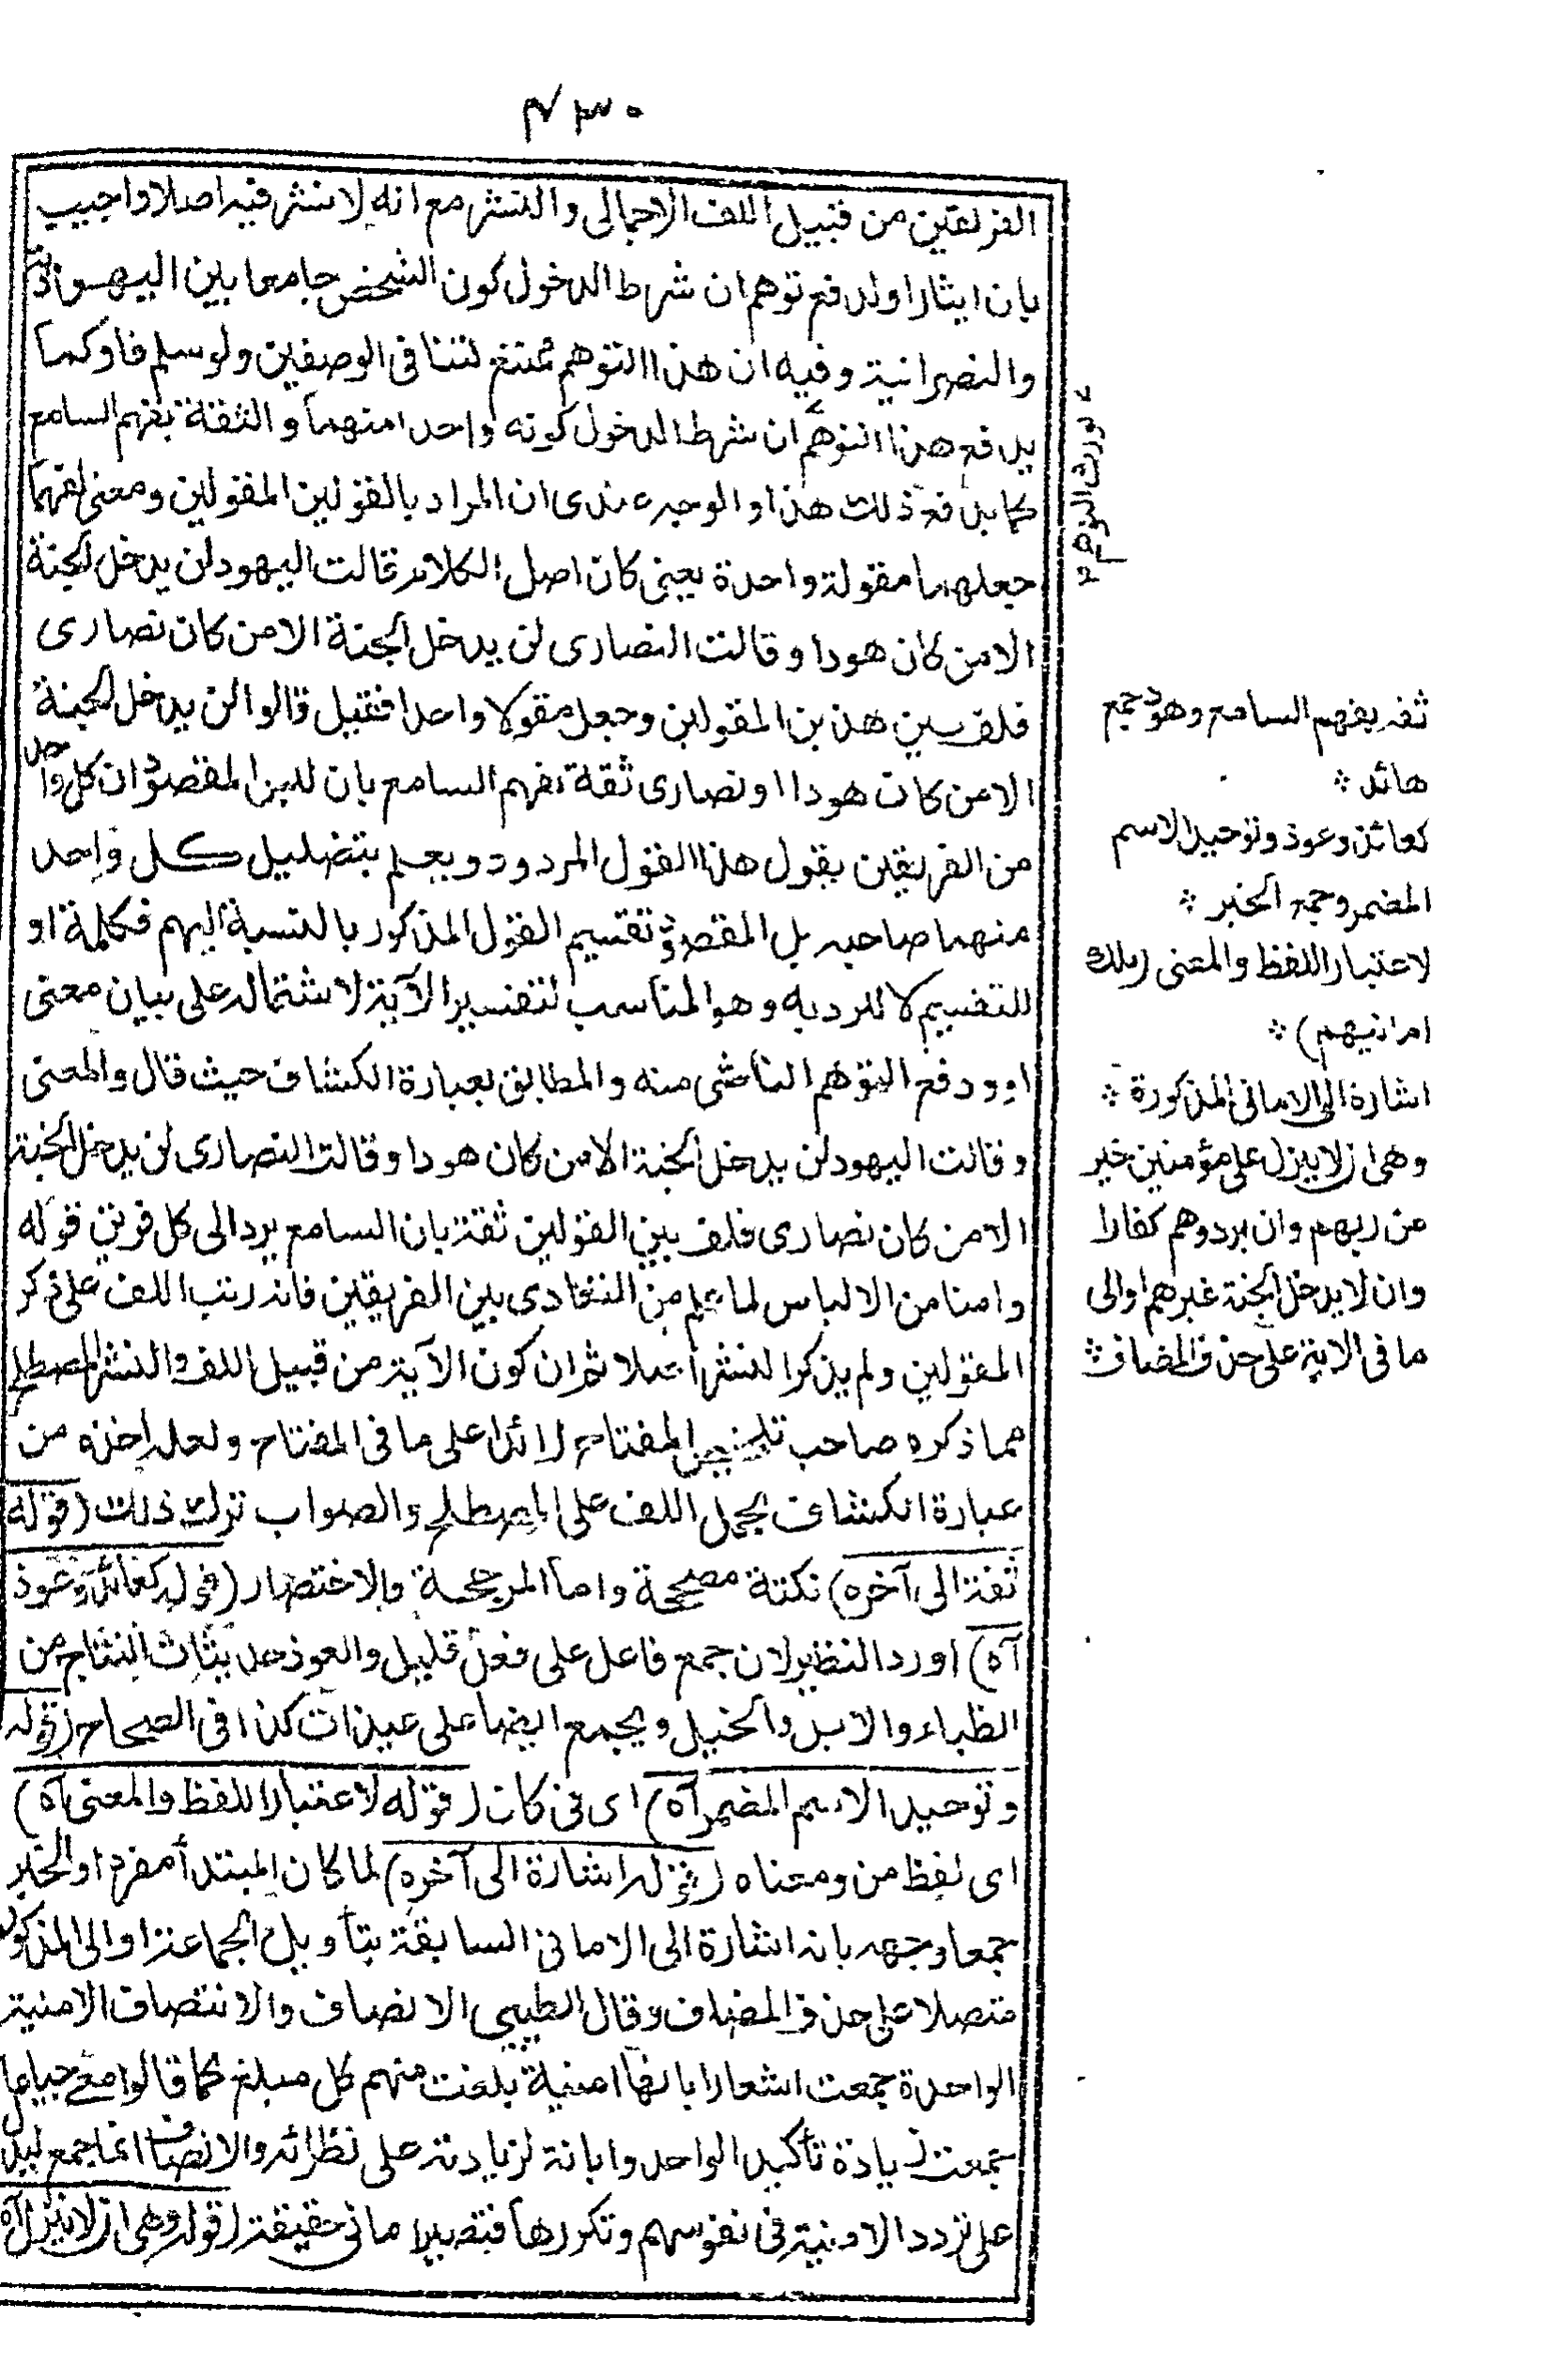 ٤٣٠
الفريقين من قبيل اللف الاجمالى والنشر مع انه لا نشر فيه اصلا واجيب
بان ايثار او لدفع توهم ان شرط الدخول كون الشخص جامعا بين اليهودية
والنصرانية وفيه ان هذا التوهم ممتنع لتنافى الوصفين ولو سلم فاو كما
يدفع هذا التوهم ان شرط الدخول كونه واحدا منهما والثقة بفهم السامع
كما يدفع ذلك هذا والوجه عندى ان المراد بالقولين المقولين ومعنى لفهما
جعلهما مقولة واحدة يعنى كان اصل الكلام قالت اليهود لن يدخل الجنة
الا من كان هودا وقالت النصارى لن يدخل الجنة الا من كان نصارى
فلف بين هذين المقولين وجعل مقولا واحدا فقيل قالوا لن يدخل الجنة
الا من كان هودا او نصارى ثقة بفهم السامع بان ليس المقصود ان كل واحد
من الفريقين يقول هذا القول المردود ويعلم بتضليل كل واحد
منهما صاحبه بل المقصود تقسيم القول المذكور بالنسبة اليهم فكلمة او
للتقسيم لا للترديد وهو المناسب لتفسير الآية لاشتماله على بيان معنى
او ودفع التوهم الناشى منه والمطابق بعبارة الكشاف حيث قال والمعنى
وقالت اليهود لن يدخل الجنة الا من كان هودا وقالت النصارى لن يدخل الجنة
الا من كان نصارى فلف بين القولين ثقة بان السامع يرد الى كل فريق قوله
وامنا من الالباس لما علم من التعادى بين الفريقين فانه رتب اللف على ذكر
المقولين ولم يذكر النشر اصلا ثم ان كون الآية من قبيل اللف والنشر المصطلح
مما ذكره صاحب تلخيص المفتاح زائدا على ما فى المفتاح ولعله اخذه من
عبارة الكشاف بحمل اللف على المصطلح والصواب ترك ذلك (قوله
ثقة الى آخره) نكتة مصححة واما المرجحة فالاختصار (قوله كعائذ وعوذ
آه) اورد النظير لان جمع فاعل على فعل قليل والعوذ حديثات النتاج من
الظباء والابل والخيل ويجمع ايضا على عيذات كذا فى الصحاح (قوله
وتوحيد الاسم المضمر آه) اى فى كان (قوله لاعتبار اللفظ والمعنى آه)
اى لفظ من ومعناه (قوله اشارة الى آخره) لما كان المبتدأ مفردا والخبر
جمعا وجهه بانه اشارة الى الامانى السابقة بتأويل الجماعة او الى المذكور
متصلا على حذف المضاف وقال الطيبى الانصاف والانتصاف الامنية
الواحدة جمعت اشعارا بانها امنية بلغت منهم كل مبلغ كما قالوا معى جياعا
جمعت زيادة تأكيد الواحد وابانة لزيادته على نظائره والانصاف انما جمع ليدل
على تردد الامنية فى نفوسهم وتكررها فتصير امانى حقيقة (قوله وهى ان لا ينزل آه
لدفع التوهم
ثقة بفهم السامع وهود جمع
هائد
كعائذ وعوذ وتوحيد الاسم
المضمر وجمع الخبر
لاعتبار اللفظ والمعنى (تلك
امانيهم)
اشارة الى الامانى المذكورة
وهى ان لا ينزل على مؤمنين خير
من ربهم وان يردوهم كفارا
وان لا يدخل الجنة غيرهم او الى
ما فى الاية على حذف المضاف